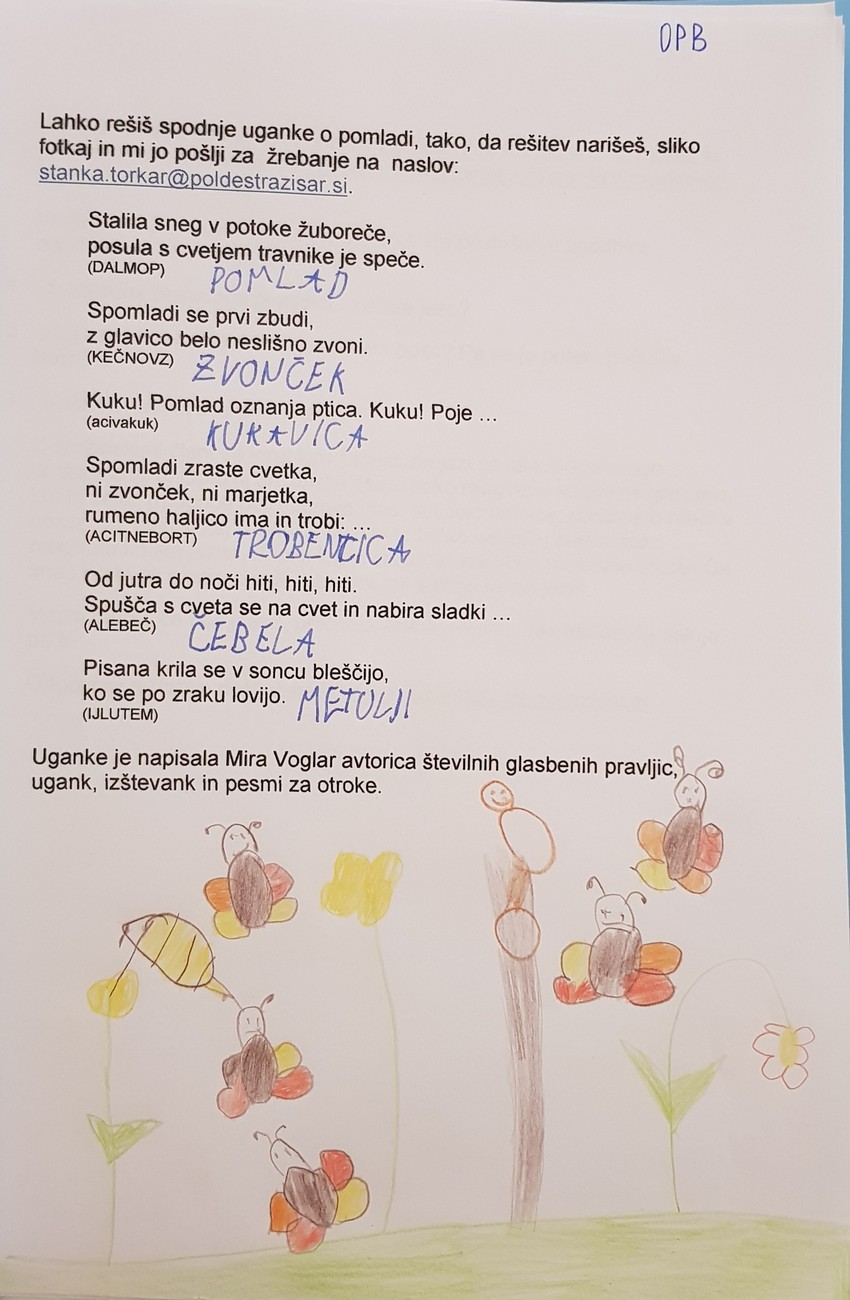 OPB
Lahko rešiš spodnje uganke o pomladi, tako, da rešitev narišeš, sliko
fotkaj in mi jo pošlji za žrebanje na naslov:
stanka.torkar@poldestrazisar.si.
Stalila sneg v potoke žuboreče,
posula s cvetjem travnike je speče.
(DALMOP) POMLAD
Spomladi se prvi zbudi,
z glavico belo neslišno zvoni.
(KEČNOVZ) ZVONČEK
Kuku! Pomlad oznanja ptica. Kuku! Poje ...
(acivakuk) KUKAVICA
Spomladi zraste cvetka,
ni zvonček, ni marjetka,
rumeno haljico ima in trobi: ...
(ACITNEBORT) TROBENTICA
Od jutra do noči hiti, hiti, hiti.
Spušča s cveta se na cvet in nabira sladki ...
(ALEBEČ) ČEBELA
Pisana krila se v soncu bleščijo,
ko se po zraku lovijo. METULJI
(IJLUTEM)
Uganke je napisala Mira Voglar avtorica številnih glasbenih pravljic,
ugank, izštevank in pesmi za otroke.